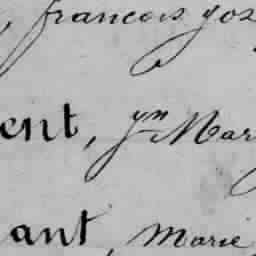 , francois jos
ent, jn Mar
ant, Marie